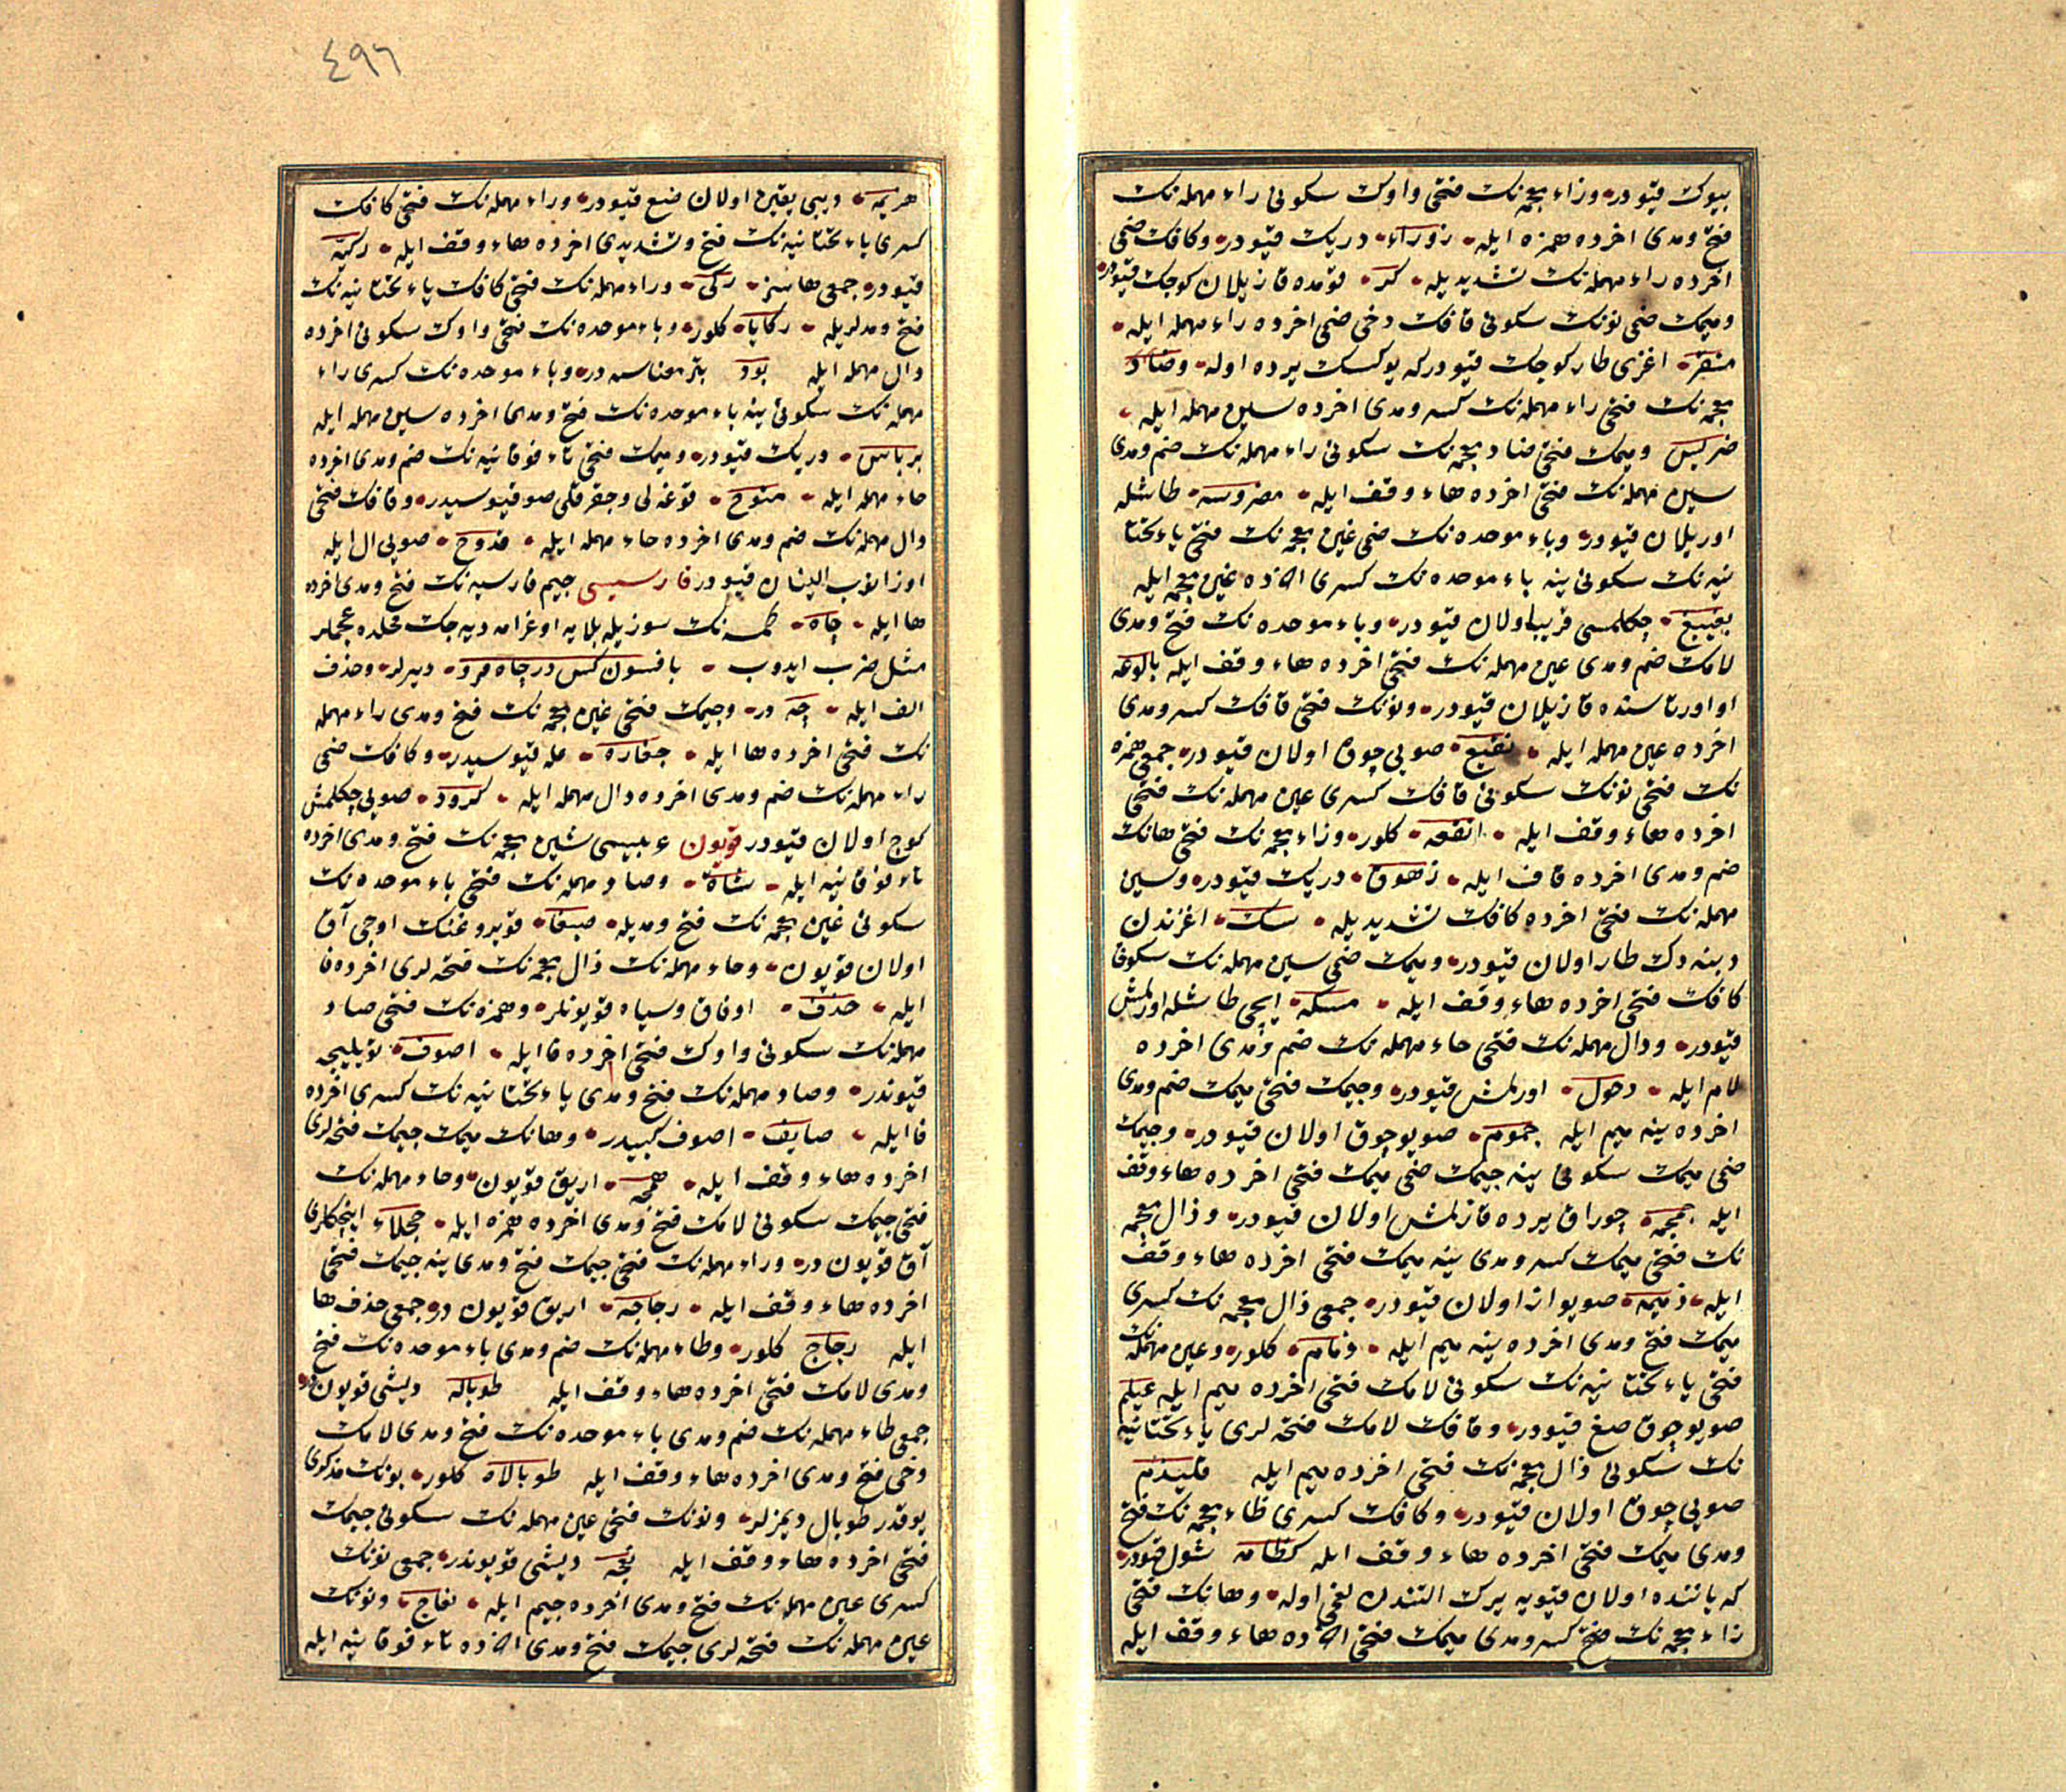 بیوك قیودر وزاء معجمه‌نك فتحی واوك سكونی راء مهمله‌نك
فتح ومدی آخرده همزه ایله زوراء دریك قیودر وكافك ضمی
آخرده راء مهمله‌نك تشدیدیله كر قومده قازیلان كوجك قیودر
ومیمك ضمی نونك سكونی قافك دخی ضمی آخرده راء مهمله ایله
منقر اغزی طار كوجك قیودر كه یوكسك یرده اوله وضاد
معجمه‌نك فتحی راء مهمله‌نك كسر ومدی آخرده سین مهمله ایله
ضریس ومیمك فتحی ضاد معجمه‌نك سكونی راء مهمله‌نك ضم ومدی
سین مهمله‌نك فتحی آخرده هاء وقف ایله مضروسه طاشله
اوریلان قیودر وباء موحده‌نك ضمی غین معجمه‌نك فتحی یاء تحتا
نیه‌نك سكونی ینه باء موحده‌نك كسری آخرده غین معجمه ایله
بغیبغ چكلمسی قریب اولان قیودر وباء موحده‌نك فتح ومدی
لامك ضم ومدی عین مهمله‌نك فتحی آخرده هاء وقف ایله بالوعه
او اورتاسنده قازیلان قیودر ونونك فتحی قافك كسر ومدی
آخرده عین مهمله ایله نقیع صویی چوق اولان قیودر جمعی همزه
نك فتحی نونك سكونی قافك كسری عین مهمله‌نك فتحی
آخرده هاء وقف ایله انقعه كلور وزاء معجمه‌نك فتحی هانك
ضم ومدی آخرده قاف ایله زهوق دریك قیودر وسین
مهمله‌نك فتحی آخرده كافك تشدیدیله سك اغزندن
دیبنه دك طار اولان قیودر ومیمك ضمی سین مهمله‌نك سكونی
كافك فتحی آخرده هاء وقف ایله مسكه ایچی طاشله اورلمش
قیودر ودال مهمله‌نك فتحی حاء مهمله‌نك ضم ومدی آخرده
لام ایله دحول اورلمش قیودر وجیمك فتحی میمك ضم ومدی
آخرده ینه میم ایله جموم صویو چوق اولان قیودر وجیمك
ضمی میمك سكونی ینه جیمك ضمی میمك فتحی آخرده هاء وقف
ایله جمجمه چوراق یرده قازلمش اولان قیودر وذال معجمه
نك فتحی میمك كسر ومدی ینه میمك فتحی آخرده هاء وقف
ایله ذمیمه صویو از اولان قیودر جمعی ذال معجمه‌نك كسری
میمك فتح ومدی آخرده ینه میم ایله ذمام كلور وعین مهمله‌نك
فتحی یاء تحتانیه‌نك سكونی لامك فتحی آخرده میم ایله عیلم
صویو چوق صغ قیودر وقافك لامك فتحه‌لری یاء تحتانیه
نك سكونی ذال معجمه‌نك فتحی آخرده میم ایله قلیذم
صویی چوق اولان قیودر وكافك كسری ظاء معجمه‌نك فتح
ومدی میمك فتحی آخرده هاء وقف ایله كظامه شول قیودر
كه یاننده اولان قیویه یرك التندن لغمی اوله وهانك فتحی
زاء معجمه‌نك كسر ومدی میمك فتحی آخرده هاء وقف ایله
٤٩٦
هزیمه ودیبی یقین اولان قیودر وراء مهمله‌نك فتحی كافك
كسری یاء تحتانیه‌نك فتح وتشدیدی آخرده هاء وقف ایله ركیه
قیودر جمعی هاسز ركی وراء مهمله‌نك فتحی كافك یاء تحتانیه‌نك
فتح ومدلریله ركایا كلور وباء موحده‌نك فتحی واوك سكونی آخرده
دال مهمله ایله بود بئر معناسنه‌در وباء موحده‌نك كسری راء
مهمله‌نك سكونی ینه باء موحده‌نك فتح ومدی آخرده سین مهمله ایله
برباس دریك قیودر ومیمك فتحی تاء فوقانیه‌نك ضم ومدی آخرده
حاء مهمله ایله متوح قوغه‌لی وچقرقلی صو قیوسیدر وقافك فتحی
دال مهمله‌نك ضم ومدی آخرده حاء مهمله ایله قدوح صویی ال ایله
اوزانوب الینان قیودر فارسیسی جیم فارسیه‌نك فتح ومدی آخرده
ها ایله چاه كمسه‌نك سوزیله بلایه اوغرامه دیه‌جك محلده عجملر
مثل ضرب ایدوب بافسون كس در چاه مرو دیرلر وحذف
الف ایله چه در وجیمك فتحی غین معجمه‌نك فتح ومدی راء مهمله
نك فتحی آخرده ها ایله جغاره مله قیوسیدر وكافك ضمی
راء مهمله‌نك ضم ومدی آخرده دال مهمله ایله كرود صویی چكلمش
كوج اولان قیودر قویون عربیسی شین معجمه‌نك فتح ومدی آخرده
تاء فوقانیه ایله شاة وصاد مهمله‌نك فتحی باء موحده‌نك
سكونی غین معجمه‌نك فتح ومدیله صبغا قویروغنك اوجی آق
اولان قویون وحاء مهمله‌نك ذال معجمه‌نك فتحه‌لری آخرده فا
ایله حذف اوفاق وسیاه قویونلر وهمزه‌نك فتحی صاد
مهمله‌نك سكونی واوك فتحی آخرده فا ایله اصوف تویلیجه
قیوندر وصاد مهمله‌نك فتح ومدی یاء تحتانیه‌نك كسری آخرده
فا ایله صایف اصوف كبیدر وهانك میمك جیمك فتحه‌لری
آخرده هاء وقف ایله همجه اریق قویون وحاء مهمله‌نك
فتحی جیمك سكونی لامك فتح ومدی آخرده همزه ایله حجلاء اینجكلری
آق قویون در وراء مهمله‌نك فتحی جیمك فتح ومدی ینه جیمك فتحی
آخرده هاء وقف ایله رجاجه اریق قویون در جمعی حذف ها
ایله رجاج كلور وطاء مهمله‌نك ضم ومدی باء موحده‌نك فتح
ومدی لامك فتحی آخرده هاء وقف ایله طوباله دیشی قویون در
جمعی طاء مهمله‌نك ضم ومدی باء موحده‌نك فتح ومدی لامك
دخی فتح ومدی آخرده هاء وقف ایله طوبالاه كلور بونك مذكری
یوقدر طوبال دیمزلر ونونك فتحی عین مهمله‌نك سكونی جیمك
فتحی آخرده هاء وقف ایله نعجه دیشی قویوندر جمعی نونك
كسری عین مهمله‌نك فتح ومدی آخرده جیم ایله نعاج ونونك
عین مهمله‌نك فتحه‌لری جیمك فتح ومدی آخرده تاء فوقانیه ایله